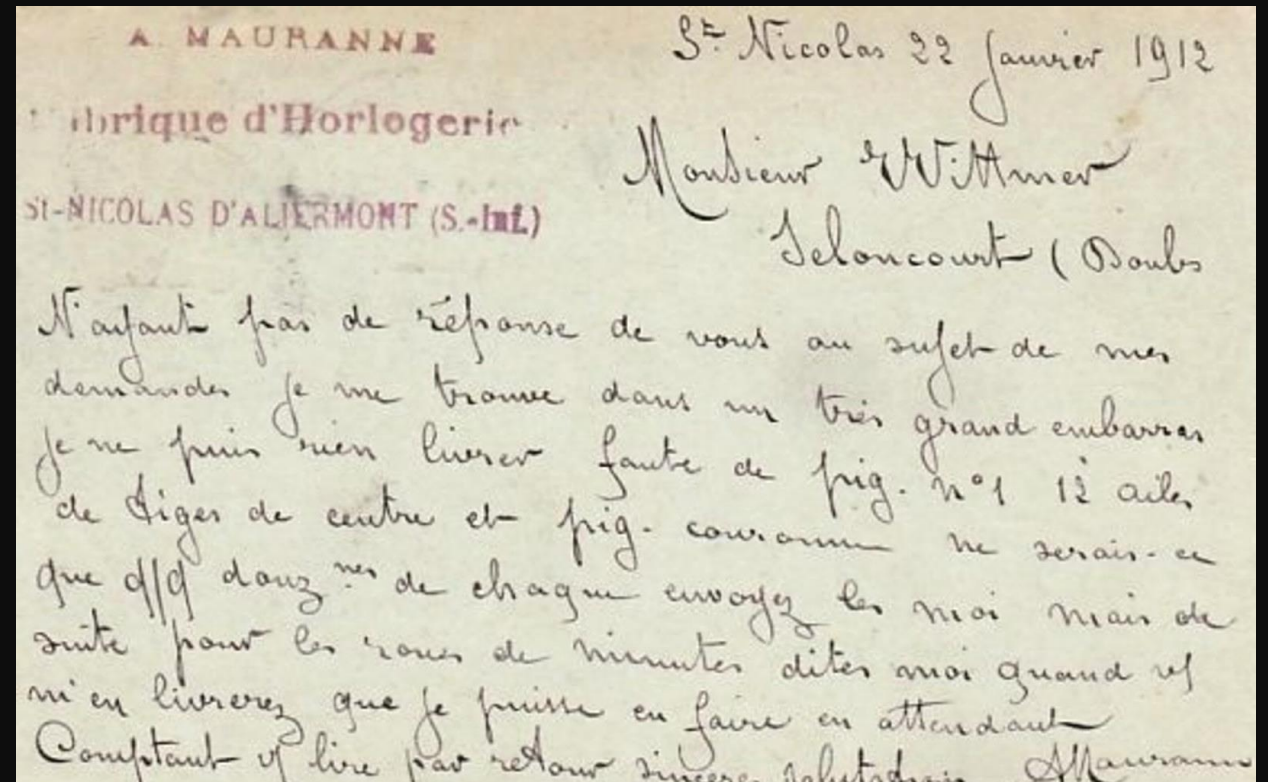 A. MAURANNE
St Nicolas 22 Janvier 1912
brique d'Horlogerie
Monsieur Wittmer
St-NICOLAS D'ALIERMONT (S.-Inf.)
Seloncourt ( Doubs
N'ayant pas de réponse de vous au sujet de mes
demandes je me trouve dans un très grand embarras
je ne puis rien livrer faute de pig. n°1 12 ailes
de tiges de centre et pig. couronne ne serais-ce
que qq douznes de chaque envoyez les moi mais de
suite pour les roues de minutes dites moi quand vs
m'en livrerez que je puisse en faire en attendant
Comptant vs lire par retour sincères salutations AMauranne